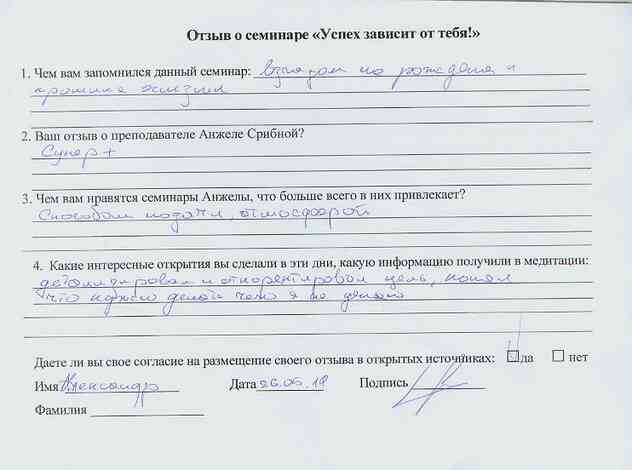 Отзыв о семинаре «Успех зависит от тебя!»
1. Чем вам запомнился данный семинар: Взглядом на рождение и
прошлые жизни
2. Ваш отзыв о преподавателе Анжеле Срибной?
Супер+
3. Чем вам нравятся семинары Анжелы, что больше всего в них привлекает?
Способом подачи, атмосферой
4. Какие интересные открытия вы сделали в эти дни, какую информацию получили в медитации:
детализировал и откоректировал цель, понял
что нужно делать чего я не делаю
Даете ли вы свое согласие на размещение своего отзыва в открытых источниках: да нет
Имя Александр Дата 26.05.19 Подпись
Фамилия